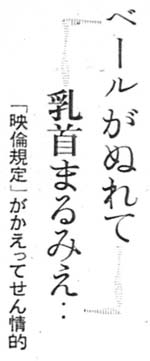 ベールがぬれて
乳首まるみえ‥
「映倫規定」がかえってせん情的